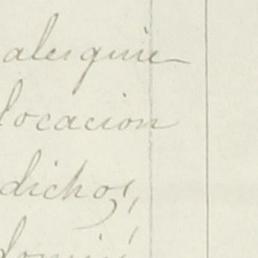 alesquie
locacion
dichos,